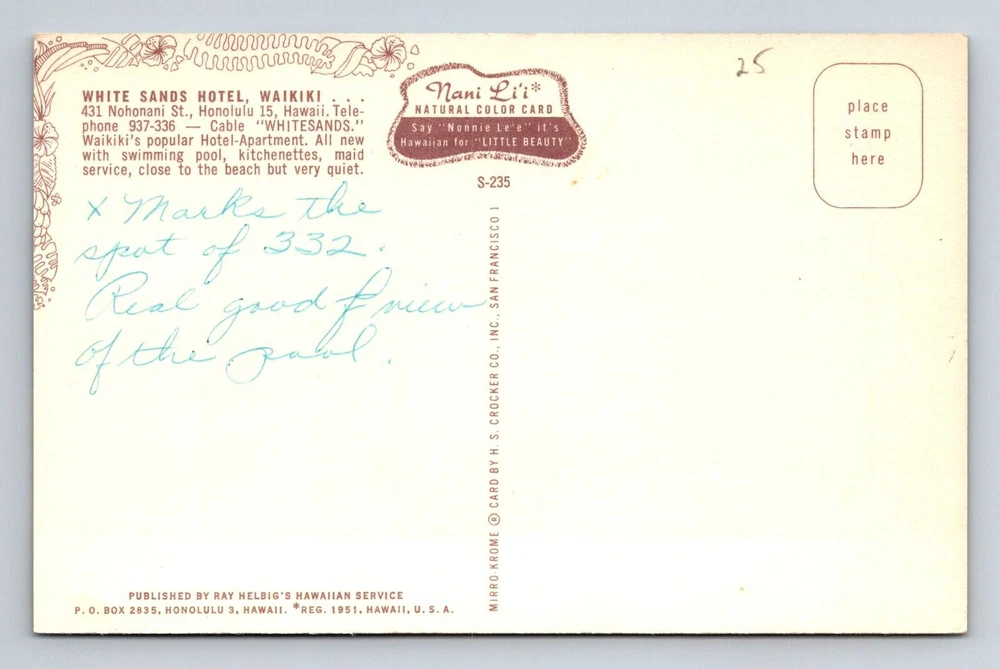 WHITE SANDS HOTEL, WAIKIKI . . .
431 Nohonani St., Honolulu 15, Hawaii. Tele-
phone 937-336 — Cable "WHITESANDS."
Waikiki's popular Hotel-Apartment. All new
with swimming pool, kitchenettes, maid
service, close to the beach but very quiet.
Nani Li'i*
NATURAL COLOR CARD
Say "Nonnie Le'e" it's
Hawaiian for "LITTLE BEAUTY"
S-235
25
place
stamp
here
x Marks the
spot of 332.
Real good view
of the pool.
MIRRO-KROME ® CARD BY H. S. CROCKER CO., INC., SAN FRANCISCO 1
PUBLISHED BY RAY HELBIG'S HAWAIIAN SERVICE
P. O. BOX 2835, HONOLULU 3, HAWAII. *REG. 1951, HAWAII, U. S. A.